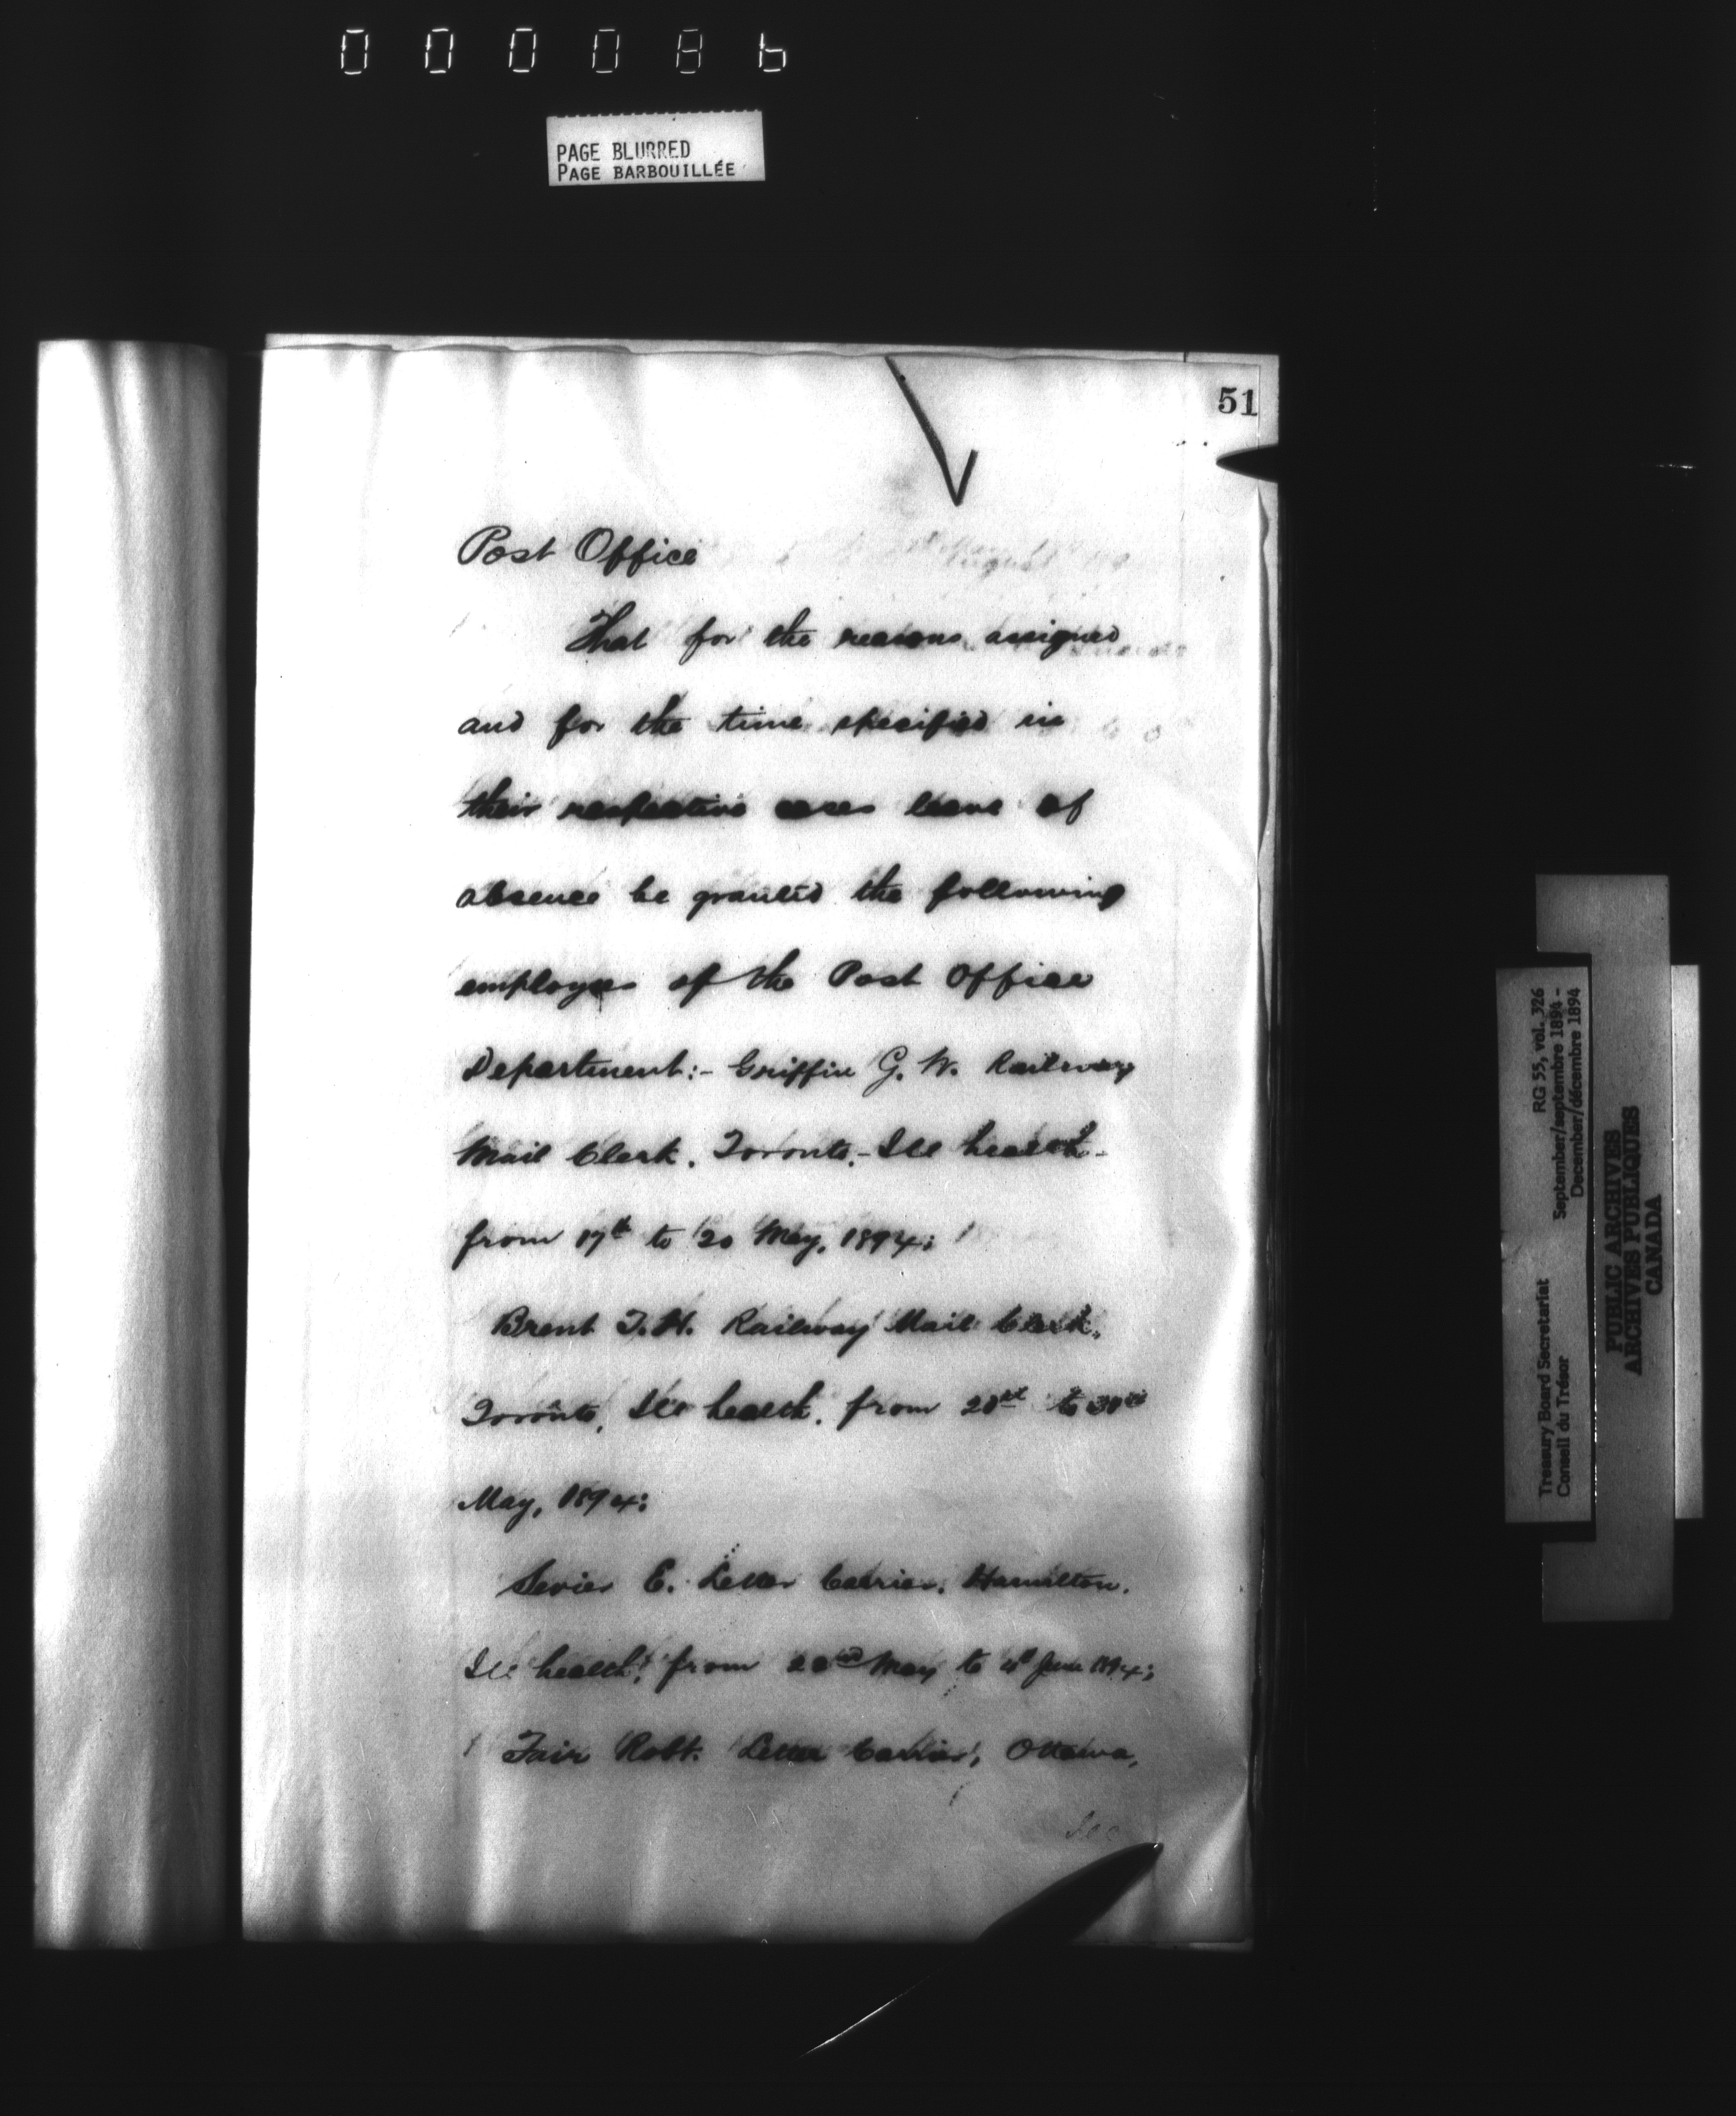 000086
PAGE BLURRED
PAGE BARBOUILLÉE
51
Post Office
That for the reasons assigned
and for the time specified in
their respective cases leave of
absence be granted the following
employees of the Post Office
Department:- Griffin G. W. Railway
Mail Clerk. Toronto.- Ill health-
from 17th to 20 May, 1894;
Brent T. H. Railway Mail Clerk.
Toronto, Ill health. from to 30th
May, 1894;
E. Letter Carrier. Hamilton.
Ill health, from May to June 1894;
Fair Robt. Letter Carrier, Ottawa,
Ill
Treasury Board Secretariat RG 55, vol. 326
Conseil du Trésor September/septembre 1894 -
December/décembre 1894
PUBLIC ARCHIVES
ARCHIVES PUBLIQUES
CANADA